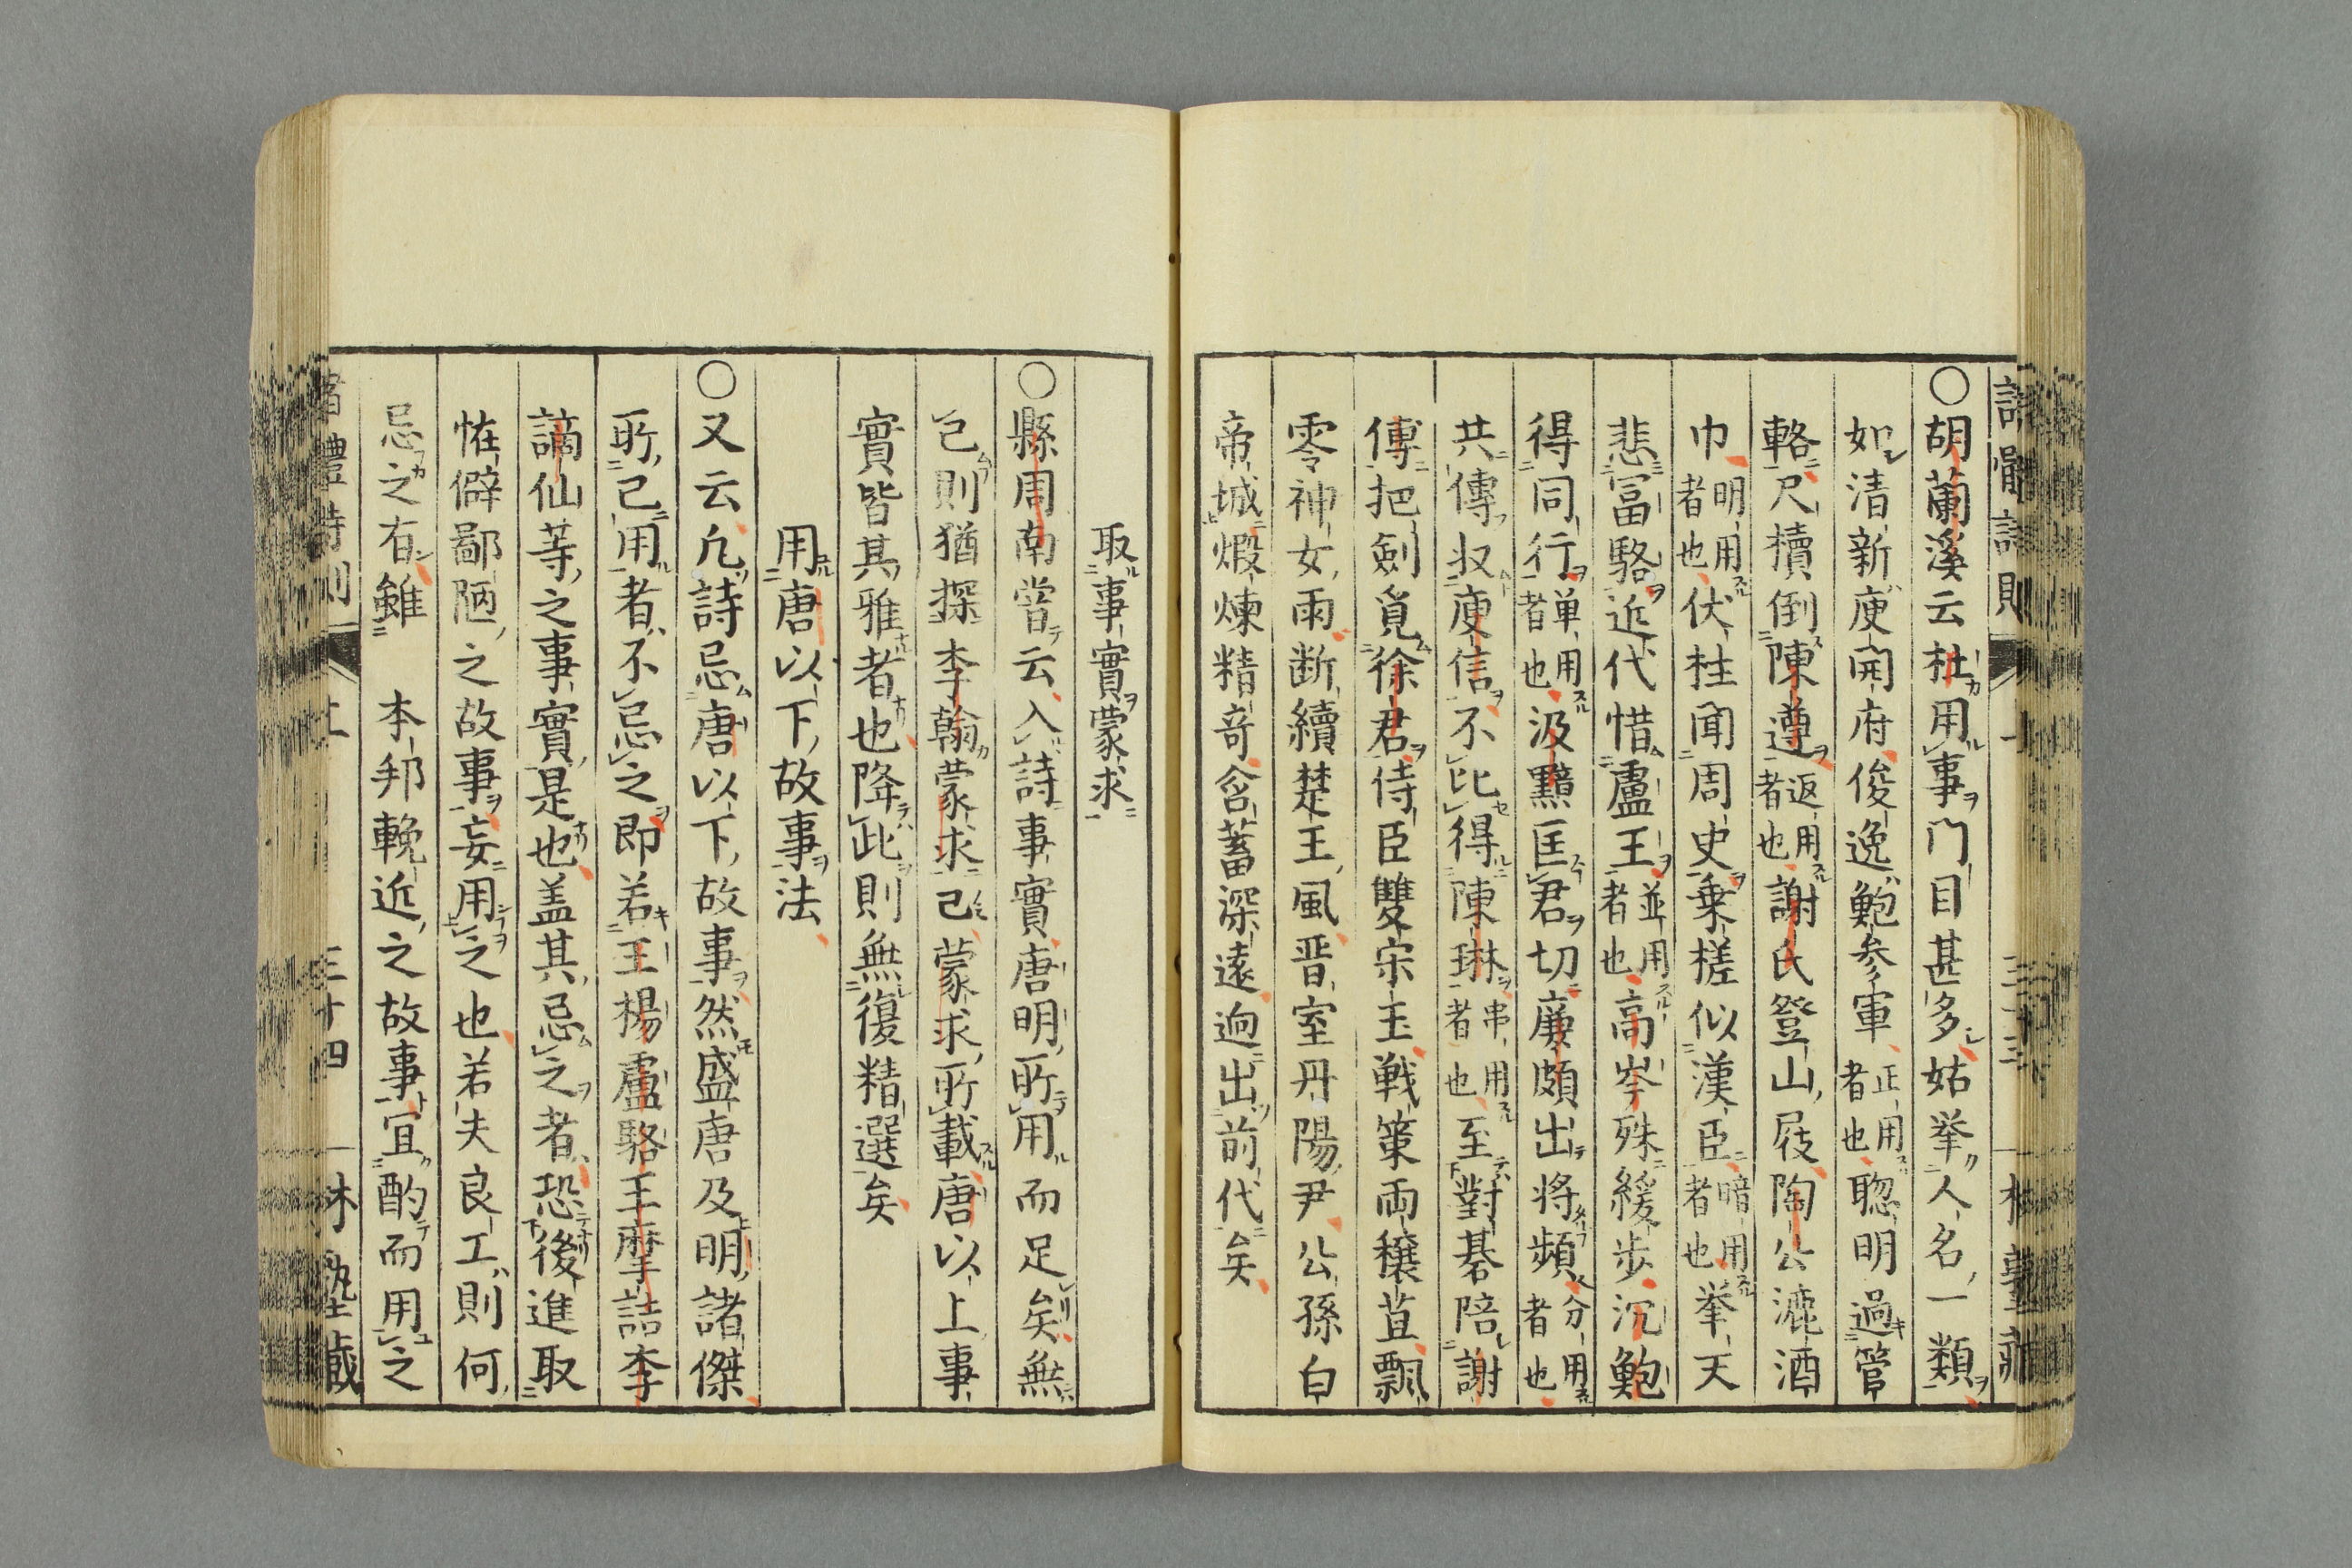 ○胡蘭溪云杜用事門目甚多姑挙人名一類
如清新庾開府俊逸鮑参軍正用者也聰明過管
輅尺牘倒陳遵返用者也謝氏登山屐陶公漉酒
巾明用者也伏柱聞周史乗槎似漢臣暗用者也挙天
悲富駱近代惜盧王並用者也高岑殊緩步沉鮑
得同行単用者也汲黯匡君切廉頗出将頻分用者也
共傳収庾信不比得陳琳串用者也至對碁陪謝
傅把劍覓徐君侍臣雙宋玉戦策両穰苴飄
零神女雨断續楚王風晋室丹陽尹公孫白
帝城煅煉精奇含蓄深遠迥出前代矣
取事實蒙求
○縣周南嘗云入詩事實唐明所用而足矣無
已則猶探李翰蒙求已蒙求所載唐以上事
實皆其雅者也降此則無復精選矣
用唐以下故事法
○又云凢詩忌唐以下故事然盛唐及明諸傑
所已用者不忌之即若王楊盧駱王摩詰李
謫仙等之事實是也盖其忌之者恐後進取
恠僻鄙陋之故事妄用之也若夫良工則何
忌之有雖　本邦輓近之故事宜酌而用之
三十四